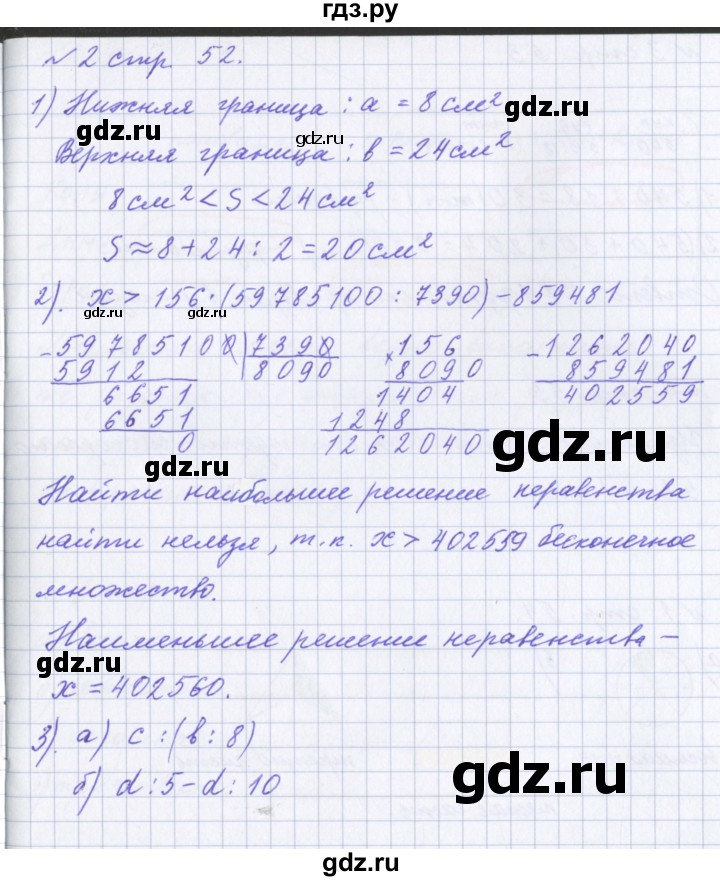 гдз.ру
№ 2 стр. 52.
1) Нижняя граница : a = 8 см²
gdz.ru
gdz.ru
Верхняя граница : b = 24 см²
gdz.ru
8 см² < S < 24 см²
S ≈ 8 + 24 : 2 = 20 см²
gdz.ru
2). x > 156 · (59785100 : 7390) - 859481
gdz.ru
gdz.ru
- 59785100 | 7390
× 156
- 1262040
5912
8090
8090
859481
6651
1404
402559
6651
1248
0
1262040
gdz.ru
gdz.ru
Найти наибольшее решение неравенства
найти нельзя, т.к. x > 402559 бесконечное
множество.
Наименьшее решение неравенства –
gdz.ru
gdz.ru
x = 402560.
3). а) c : (b : 8)
б) d : 5 - d : 10
gdz.ru
gdz.ru
gdz.ru